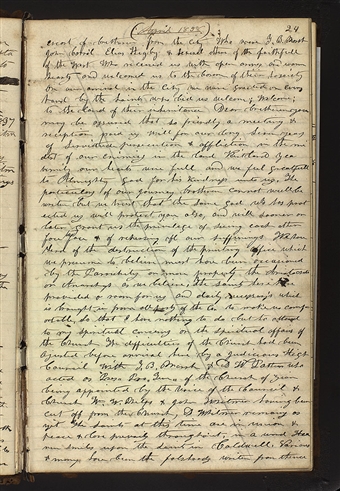 April 1838 24
escort of bretheren from the City Who were G. B.
John Corril Elias Higby & several others of the faithfull
of the West Who received us with open armes and warm
hearts and welcomed us to the bosom of their sosiety
On our arrival in the City we were greeted on every
hand by the Saints who bid us welcom; Welcome;
to the land of their inheritance. Dear bretheren you
may be assured that so friendly a meeting &
reception paid us well for our long seven years
of servitude persecution & affliction in the mi
dst of our enimies in the land Kirtland yea
verily our hearts were full and we feel greatfull
to Almighty God for his kindness unto us. The
particulars of our Journey brother cannot well be
writen but we trust that the same God who has prot
ected us will protect you also, and will sooner or
later grant us the privilege of seeing each other
face & face & of rehersing all our sufferings We have
heard of the destruction of the printing office which
we presume to believe must have been occasioned
by the Parrishites or more properly the Aristocrats
or Anarchys as we believe, The saints here have
provided a room for us and daily necessary's which
is brought in from all parts of the Co. to make us comfor
table, so that I have nothing to do but to attend
to my spiritual concerns or the spiritual affairs of
the Church The difficulties of the Church had been
ajusted before arrival here by a Judicious High
Council With T. B. Marsh & D W Patten who
acted as Pres. Pro. Tem. of the Church of Zion
being appointed by the voice of the Council &
Church Wm W. Phelps & John Whitmer having been
cut off from the Church, D Whitmer remains as
yet The saints at this time are in union &
peace & love prevails throughout, in a word Hea
ven smiles upon the saints in Caldwell. Various
& many have been the falshoods writen from thence